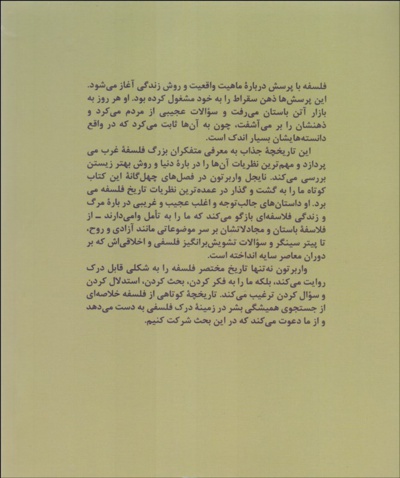 فلسفه با پرسش دربارهٔ ماهیت واقعیت و روش زندگی آغاز می‌شود.
این پرسش‌ها ذهن سقراط را به خود مشغول کرده بود. او هر روز به
بازار آتن باستان می‌رفت و سؤالات عجیبی از مردم می‌کرد و
ذهنشان را بر می‌آشفت، چون به آن‌ها ثابت می‌کرد که در واقع
دانسته‌هایشان بسیار اندک است.
این تاریخچهٔ جذاب به معرفی متفکران بزرگ فلسفهٔ غرب می
پردازد و مهم‌ترین نظریات آن‌ها را در بارهٔ دنیا و روش بهتر زیستن
بررسی می‌کند. نایجل واربرتون در فصل‌های چهل‌گانهٔ این کتاب
کوتاه ما را به گشت و گذار در عمده‌ترین نظریات تاریخ فلسفه می
برد. او داستان‌های جالب‌توجه و اغلب عجیب و غریبی در بارهٔ مرگ
و زندگی فلاسفه‌ای بازگو می‌کند که ما را به تأمل وامی‌دارند ـ از
فلاسفهٔ باستان و مجادلاتشان بر سر موضوعاتی مانند آزادی و روح،
تا پیتر سینگر و سؤالات تشویش‌برانگیز فلسفی و اخلاقی‌اش که بر
دوران معاصر سایه انداخته است.
واربرتون نه‌تنها تاریخ مختصر فلسفه را به شکلی قابل درک
روایت می‌کند، بلکه ما را به فکر کردن، بحث کردن، استدلال کردن
و سؤال کردن ترغیب می‌کند. تاریخچهٔ کوتاهی از فلسفه خلاصه‌ای
از جستجوی همیشگی بشر در زمینهٔ درک فلسفی به دست می‌دهد
و از ما دعوت می‌کند که در این بحث شرکت کنیم.